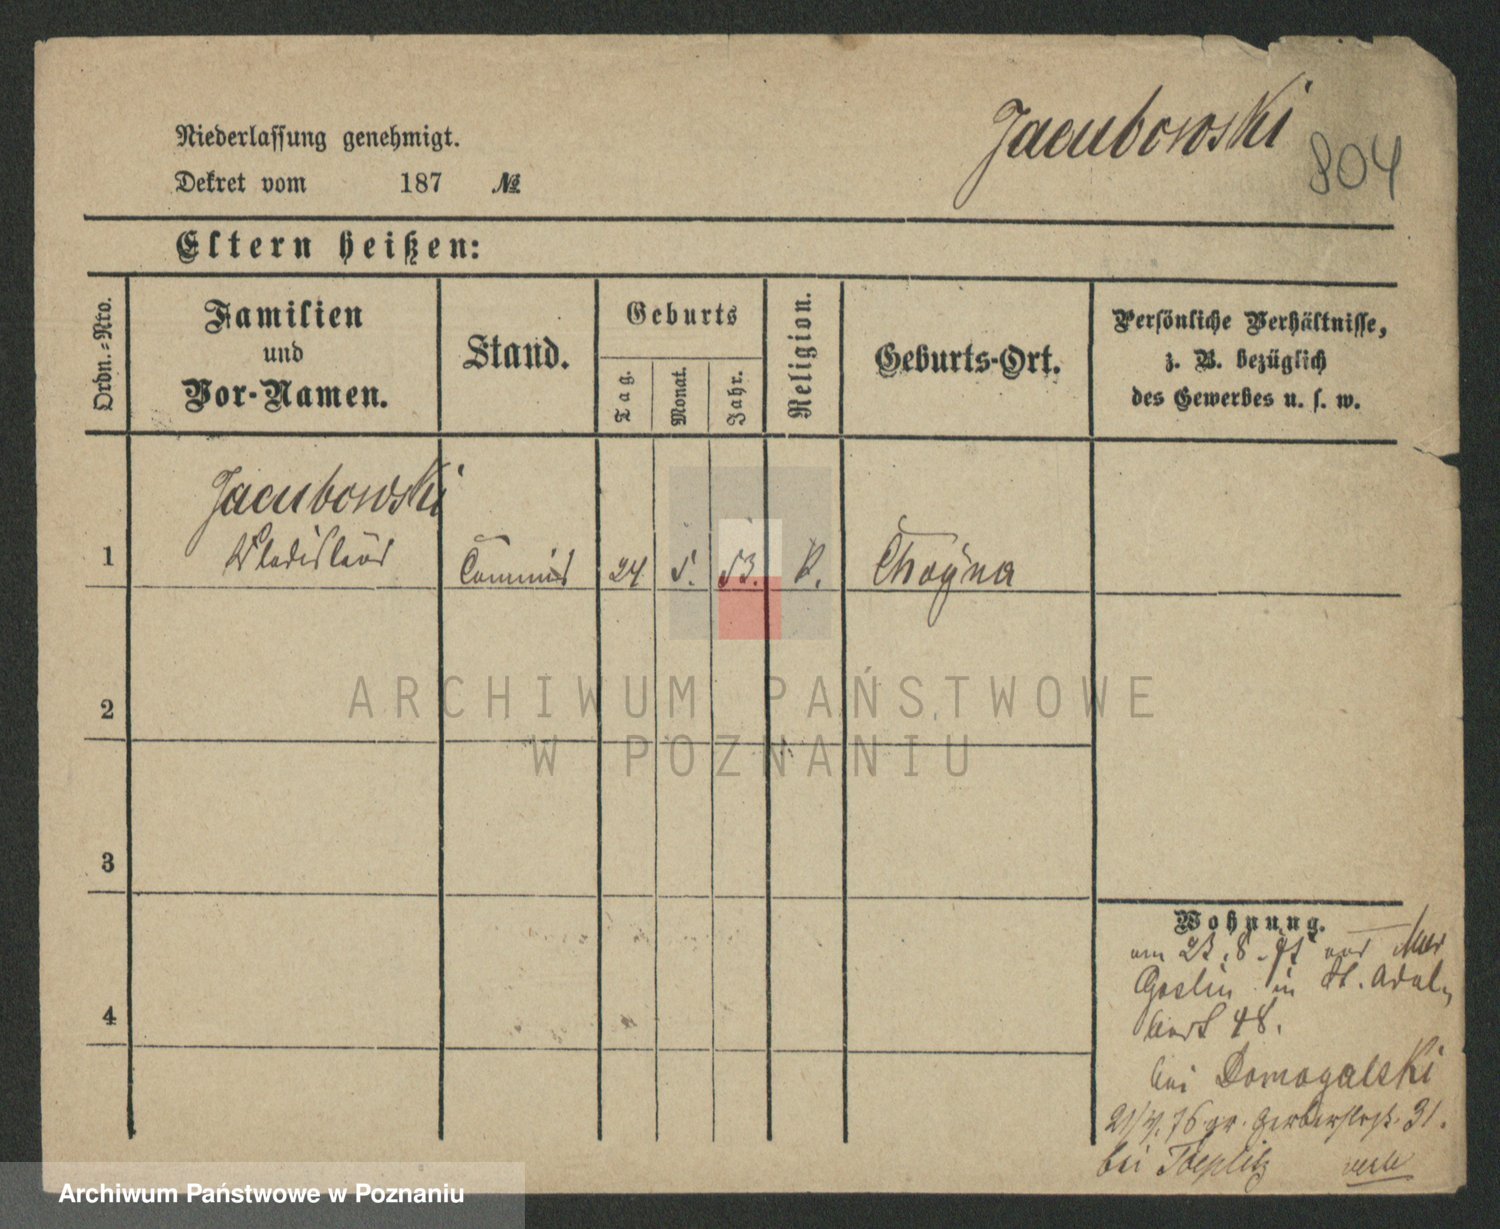 Jacubowski
804
Niederlassung genehmigt.
Dekret vom 187 №
Eltern heißen:
Ordn.-Nro.
Familien
und
Vor-Namen.
Stand.
Geburts
Tag.
Monat.
Jahr.
Religion.
Geburts-Ort.
Persönliche Verhältnisse,
z. B. bezüglich
des Gewerbes u. s. w.
Jacubowski
1 Wladislaus Commis 24 5. 53. K. Choyna
2
3
4
Wohnung.
am 23. 8. 75 aus Mur
Goslin in St. Adal„
bert 48.
bei Domogalski
76 gr. Gerberstrß. 31.
bei Toeplitz
ARCHIWUM PAŃSTWOWE
W POZNANIU
Archiwum Państwowe w Poznaniu